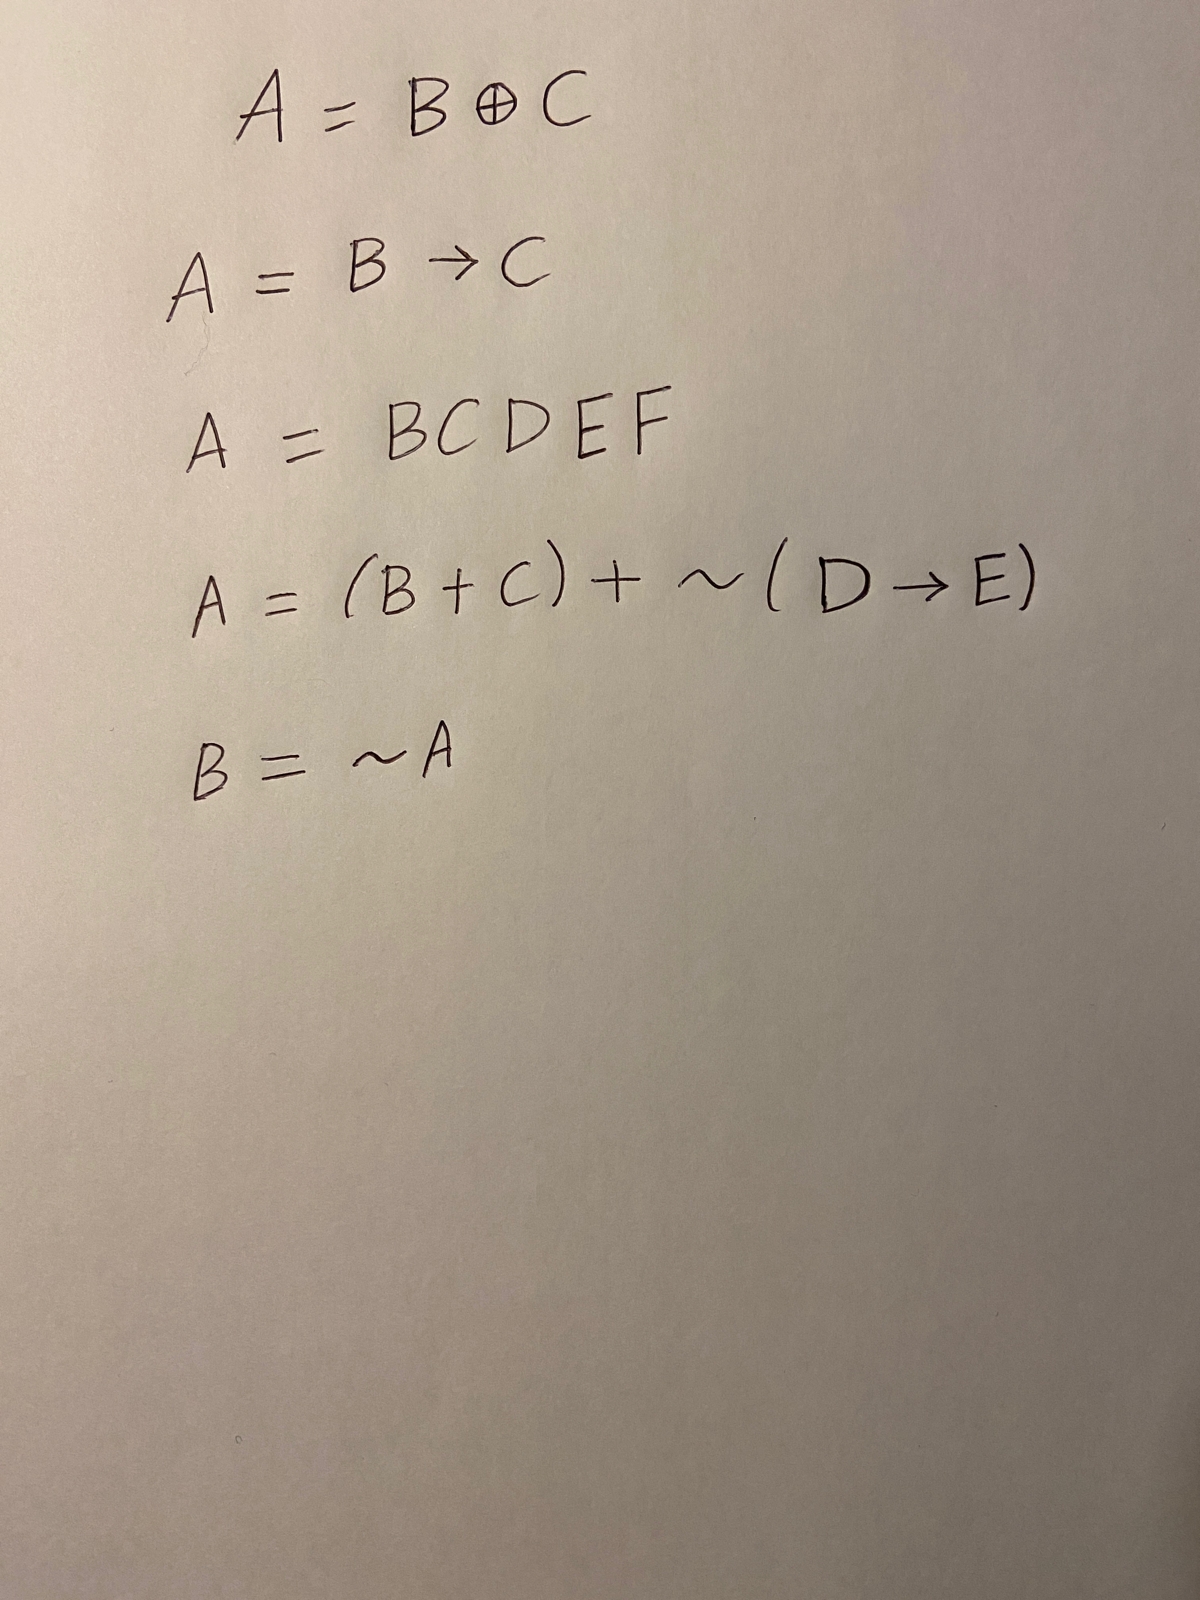 A = B ⊕ C
A = B → C
A = BCDEF
A = (B + C) + ~(D → E)
B = ~A